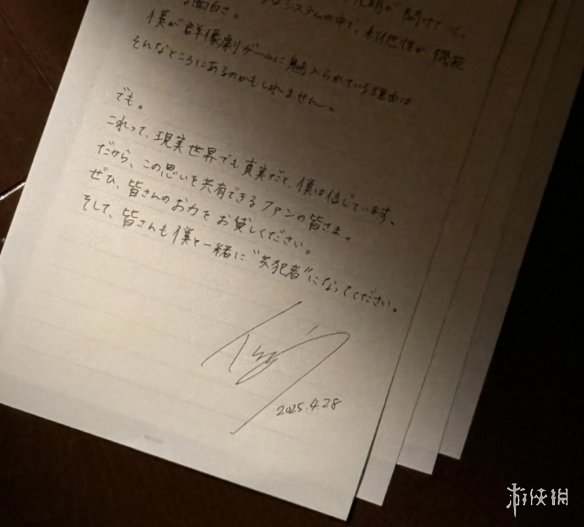 な面白さ。
なシステムの中で、利他性が機能
僕が群像劇ゲームに魅入られている理由は
そんなところにあるのかもしれません。
でも。
これって、現実世界でも真実だと、僕は信じています。
だから、この思いを共有できるファンの皆さま。
ぜひ、皆さんのお力をお貸しください。
そして、皆さんも僕と一緒に“共犯者”になってください。
2025.4.28
游侠网